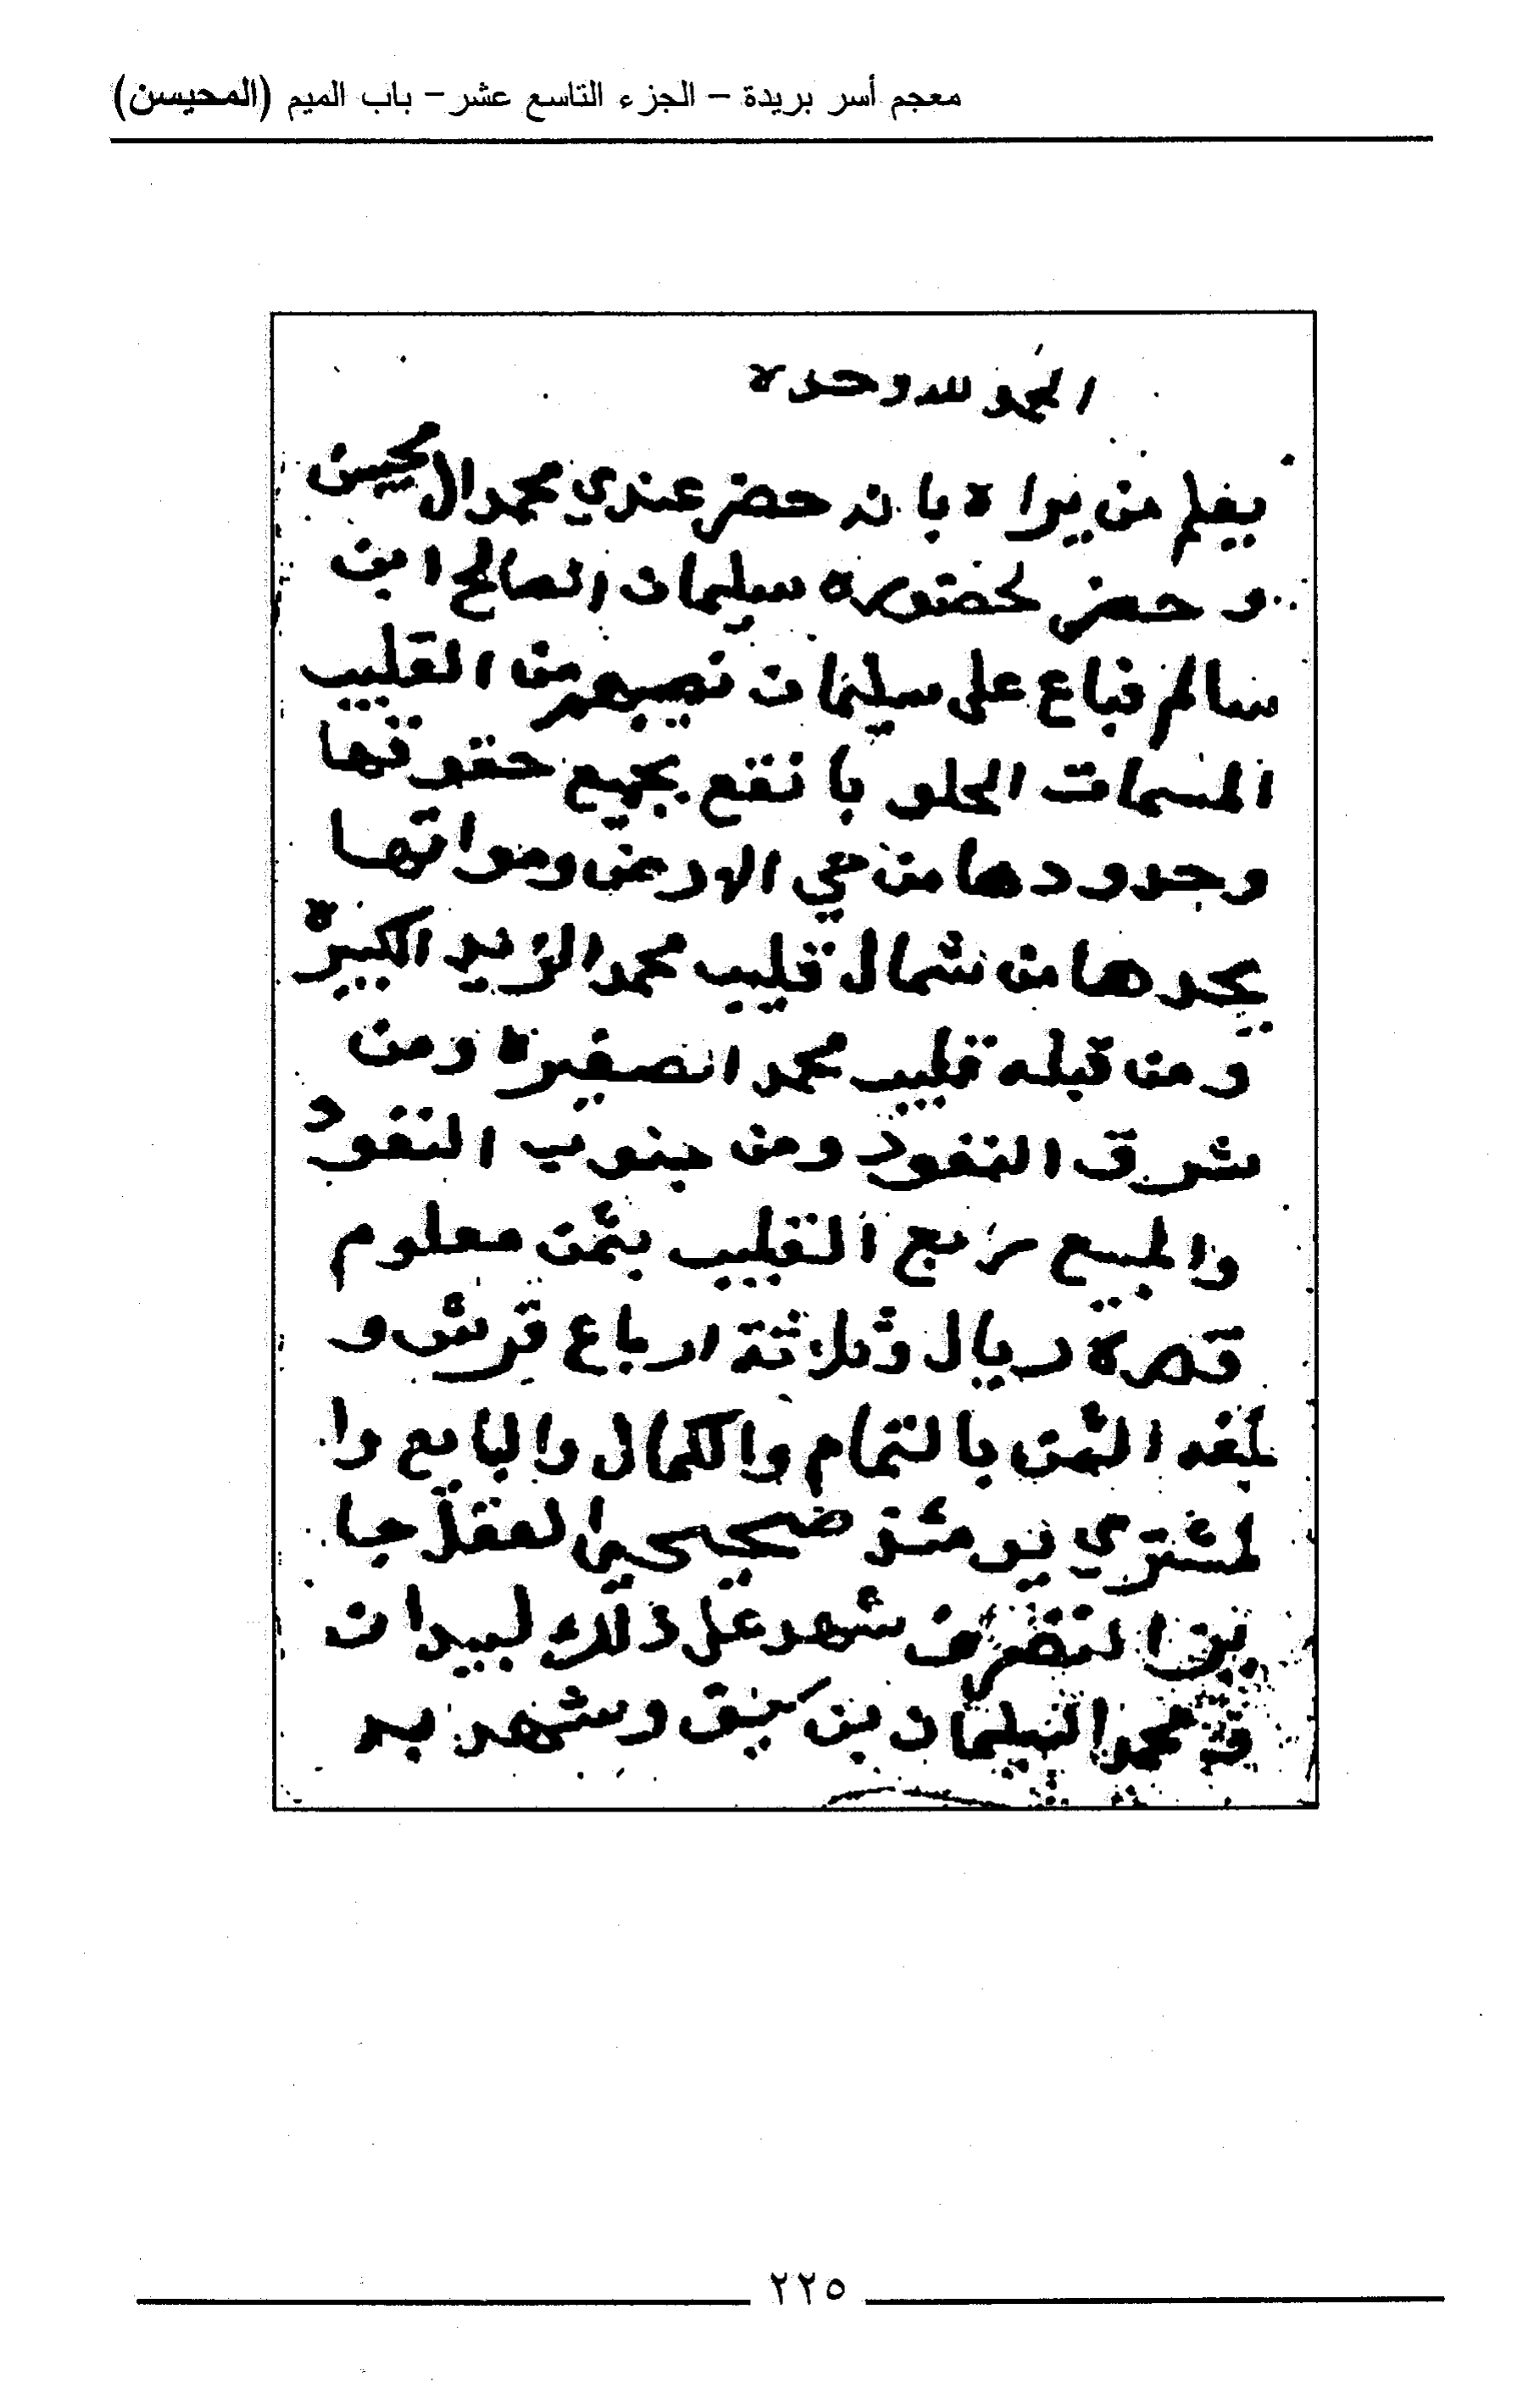 معجم أسر بريدة – الجزء التاسع عشر – باب الميم (المحيسن)
الحمد لله وحده
يعلم من يراه بانه حضر عندي محمد ال محيسن
وحضر لحضوره سليمان الصالح ابن
سالم فباع على سليمان نصيبهم من القليب
المسمات الحلو بانقع بجميع حقوقها
وحدودها من حي الارض ومواتها
يحدها من شمال قليب محمد الزيد الكبيره
ومن قبله قليب محمد الصغيره ومن
شرق النفود ومن جنوب النفود
والمبيع ربع القليب بثمن معلوم
قدره ريال وثلاثة ارباع قرش و
بلغه الثمن بالتمام والكمال والبايع وا
لمشتري يومئذ صحيحي العقل جا
يزا التصرف شهد على ذلك لبيدان
محمد السليمان بن وشهد به
٢٢٥